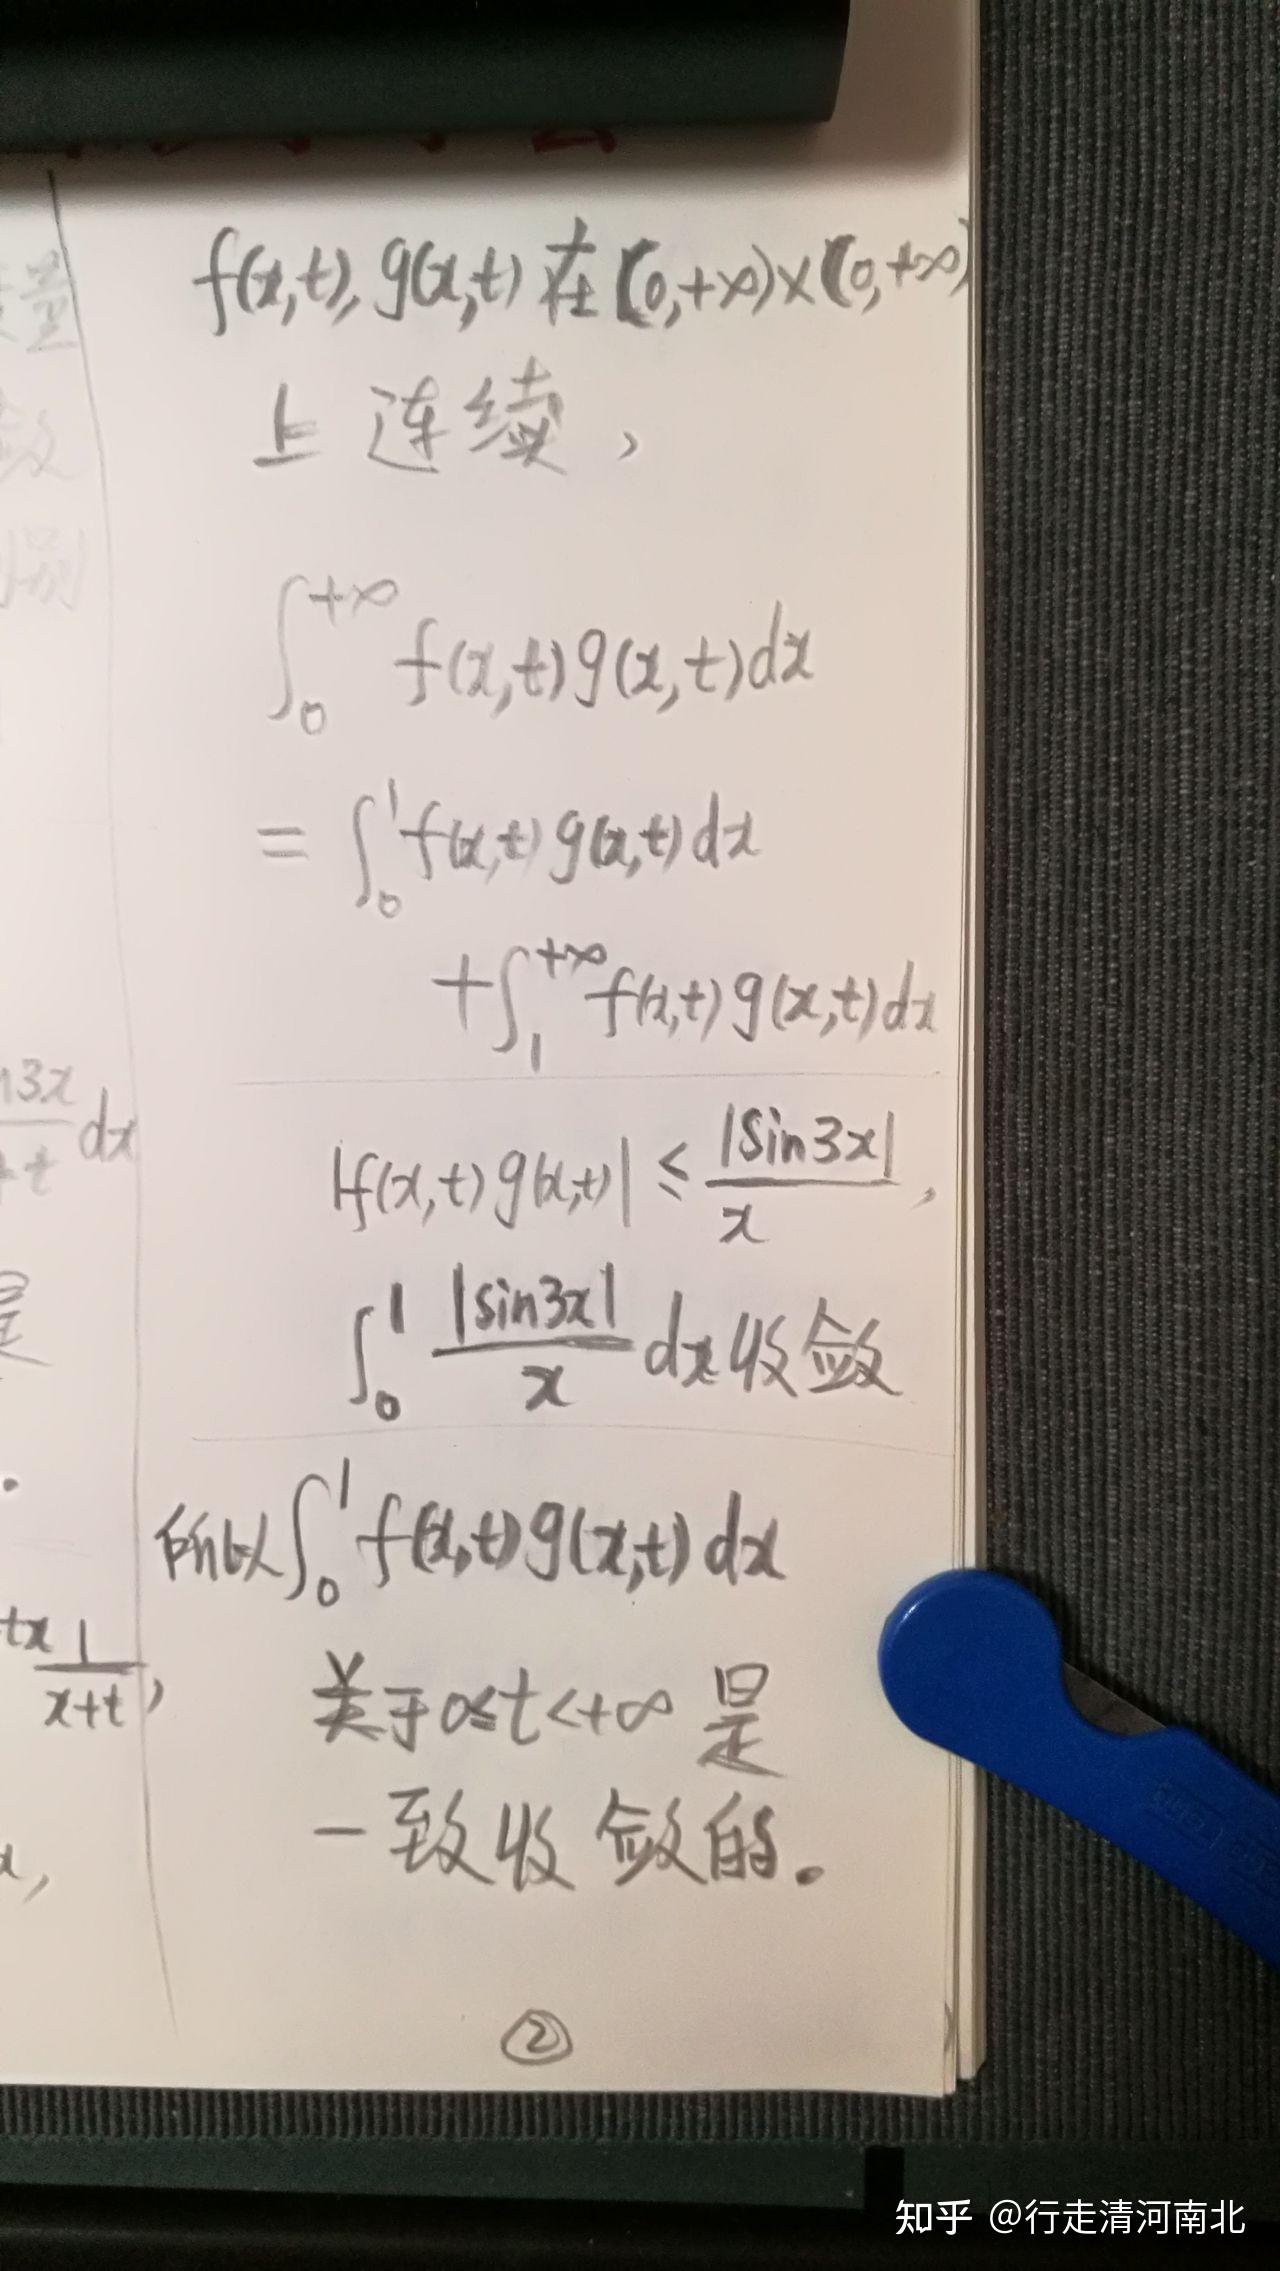 f(x,t), g(x,t) 在 (0,+∞)×(0,+∞)
上连续，
∫₀^{+∞} f(x,t)g(x,t)dx
= ∫₀^1 f(x,t)g(x,t)dx
+∫₁^{+∞} f(x,t)g(x,t)dx
|f(x,t)g(x,t)| ≤ |sin3x|/x ,
∫₀^1 |sin3x|/x dx 收敛
所以 ∫₀^1 f(x,t)g(x,t)dx
关于 0≤t<+∞ 是
一致收敛的.
②
量
敛
别
3x
dx
t
是
.
tx 1/(x+t) ,
x,
知乎 @行走清河南北